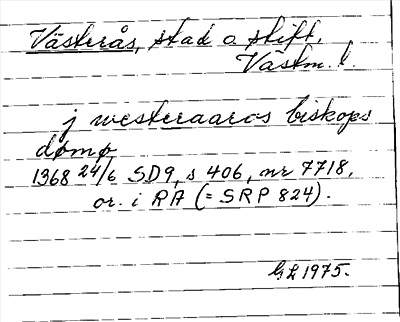 Västerås, stad o. stift,
Västm. l.
j westeraaros biskops
dømø
1368 24/6 SD9, s 406, nr 7718,
or. i RA (= SRP 824).
GL 1975.